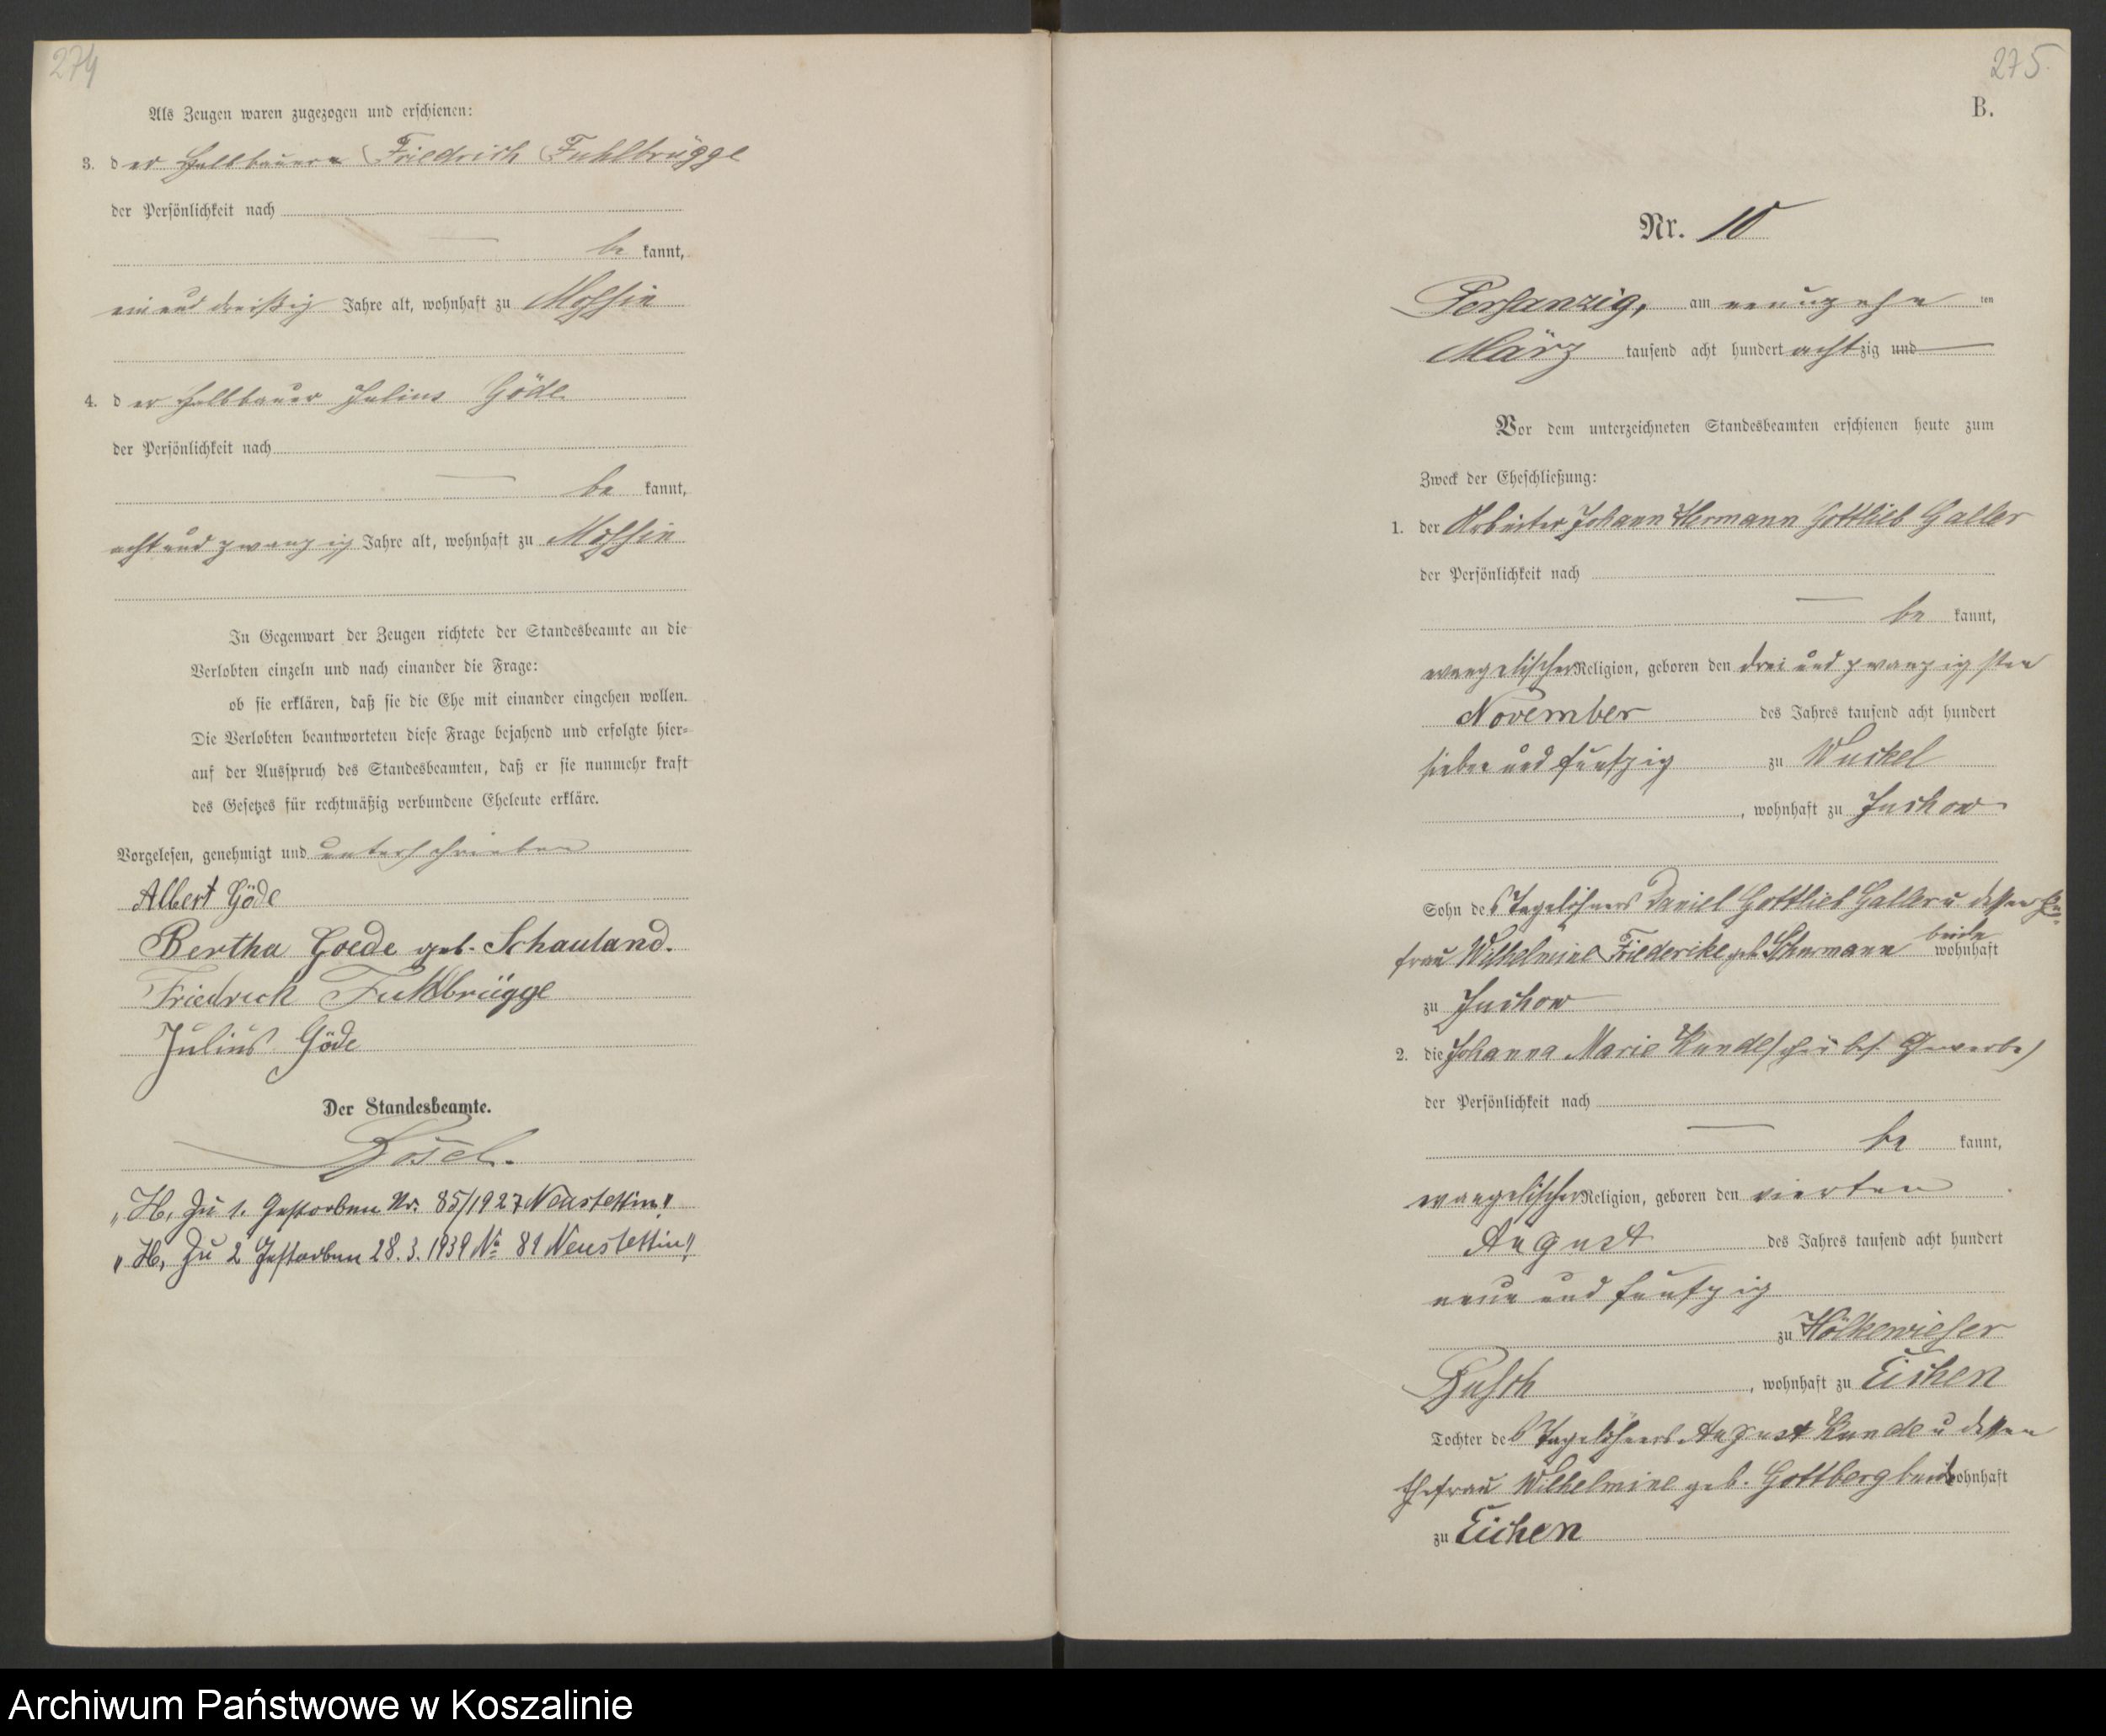 274
Als Zeugen waren zugezogen und erschienen:
3. der Halbbauern Friedrich Fuhlbrügge
der Persönlichkeit nach
be kannt,
ein und dreißig Jahre alt, wohnhaft zu Mossin
4. der Halbbauer Julius Göde
der Persönlichkeit nach
be kannt,
acht und zwanzig Jahre alt, wohnhaft zu Mossin
In Gegenwart der Zeugen richtete der Standesbeamte an die
Verlobten einzeln und nach einander die Frage:
ob sie erklären, daß sie die Ehe mit einander eingehen wollen.
Die Verlobten beantworteten diese Frage bejahend und erfolgte hier-
auf der Ausspruch des Standesbeamten, daß er sie nunmehr kraft
des Gesetzes für rechtmäßig verbundene Eheleute erkläre.
Vorgelesen, genehmigt und unterschrieben
Albert Göde
Bertha Goede geb. Schauland.
Friedrich Fuhlbrügge
Julius Göde
Der Standesbeamte.
"H, Zu 1. Gestorben Nr. 85/1927 Neustettin."
"H, Zu 2 Gestorben 28.3.1939 No 81 Neustettin"
275.
B.
Nr. 10
Persanzig, am neunzehn ten
März tausend acht hundert achtzig und
Vor dem unterzeichneten Standesbeamten erschienen heute zum
Zweck der Eheschließung:
1. der Arbeiter Johann Hermann Gottlieb Galler
der Persönlichkeit nach
be kannt,
evangelischer Religion, geboren den drei und zwanzigsten
November des Jahres tausend acht hundert
sieben und fünfzig zu Wuckel
, wohnhaft zu Juchow
Sohn des Tagelöhners Daniel Gottlieb Galler u dessen Ehe-
frau Wilhelmine Friedericke geb. beide wohnhaft
zu Juchow
2. die Johanna Marie Kunde
der Persönlichkeit nach
be kannt,
evangelischer Religion, geboren den vierten
August des Jahres tausend acht hundert
neun und fünfzig
zu Hölkewieser
Busch, wohnhaft zu Eichen
Tochter des Tagelöhners August Kunde u dessen
Ehefrau Wilhelmine geb. Gottberg beide wohnhaft
zu Eichen
Archiwum Państwowe w Koszalinie